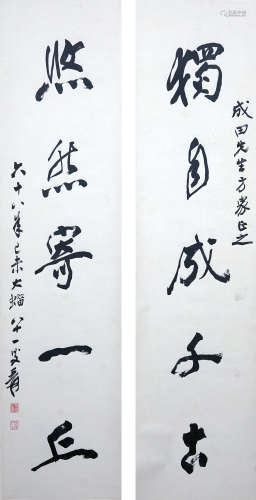 獨自成千古
成田先生方家正之
悠然寄一丘
六十八年己未大 八十一叟爰